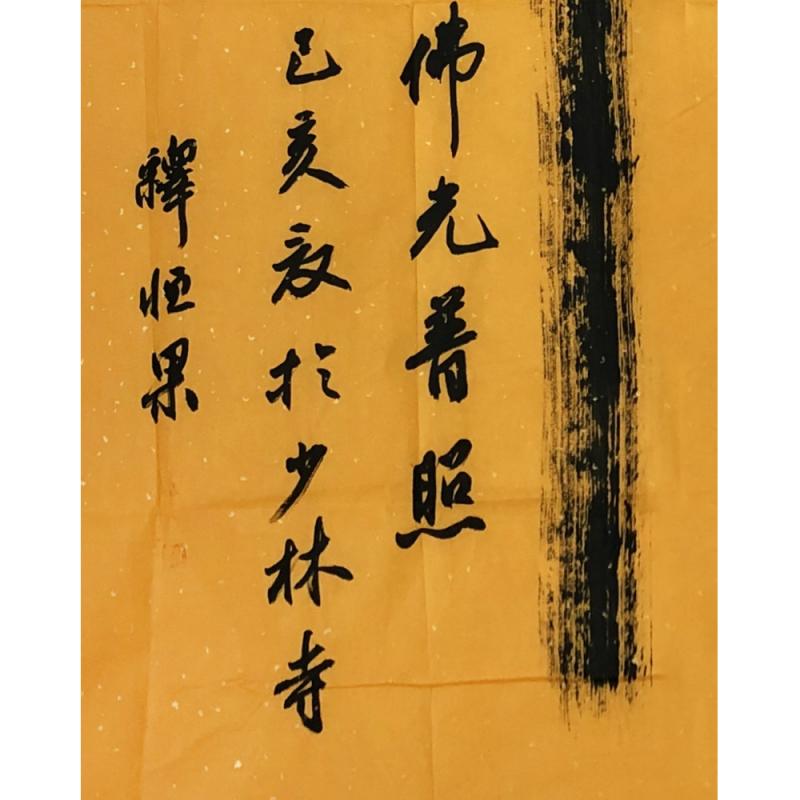 佛光普照
己亥敬於少林寺
釋恒果